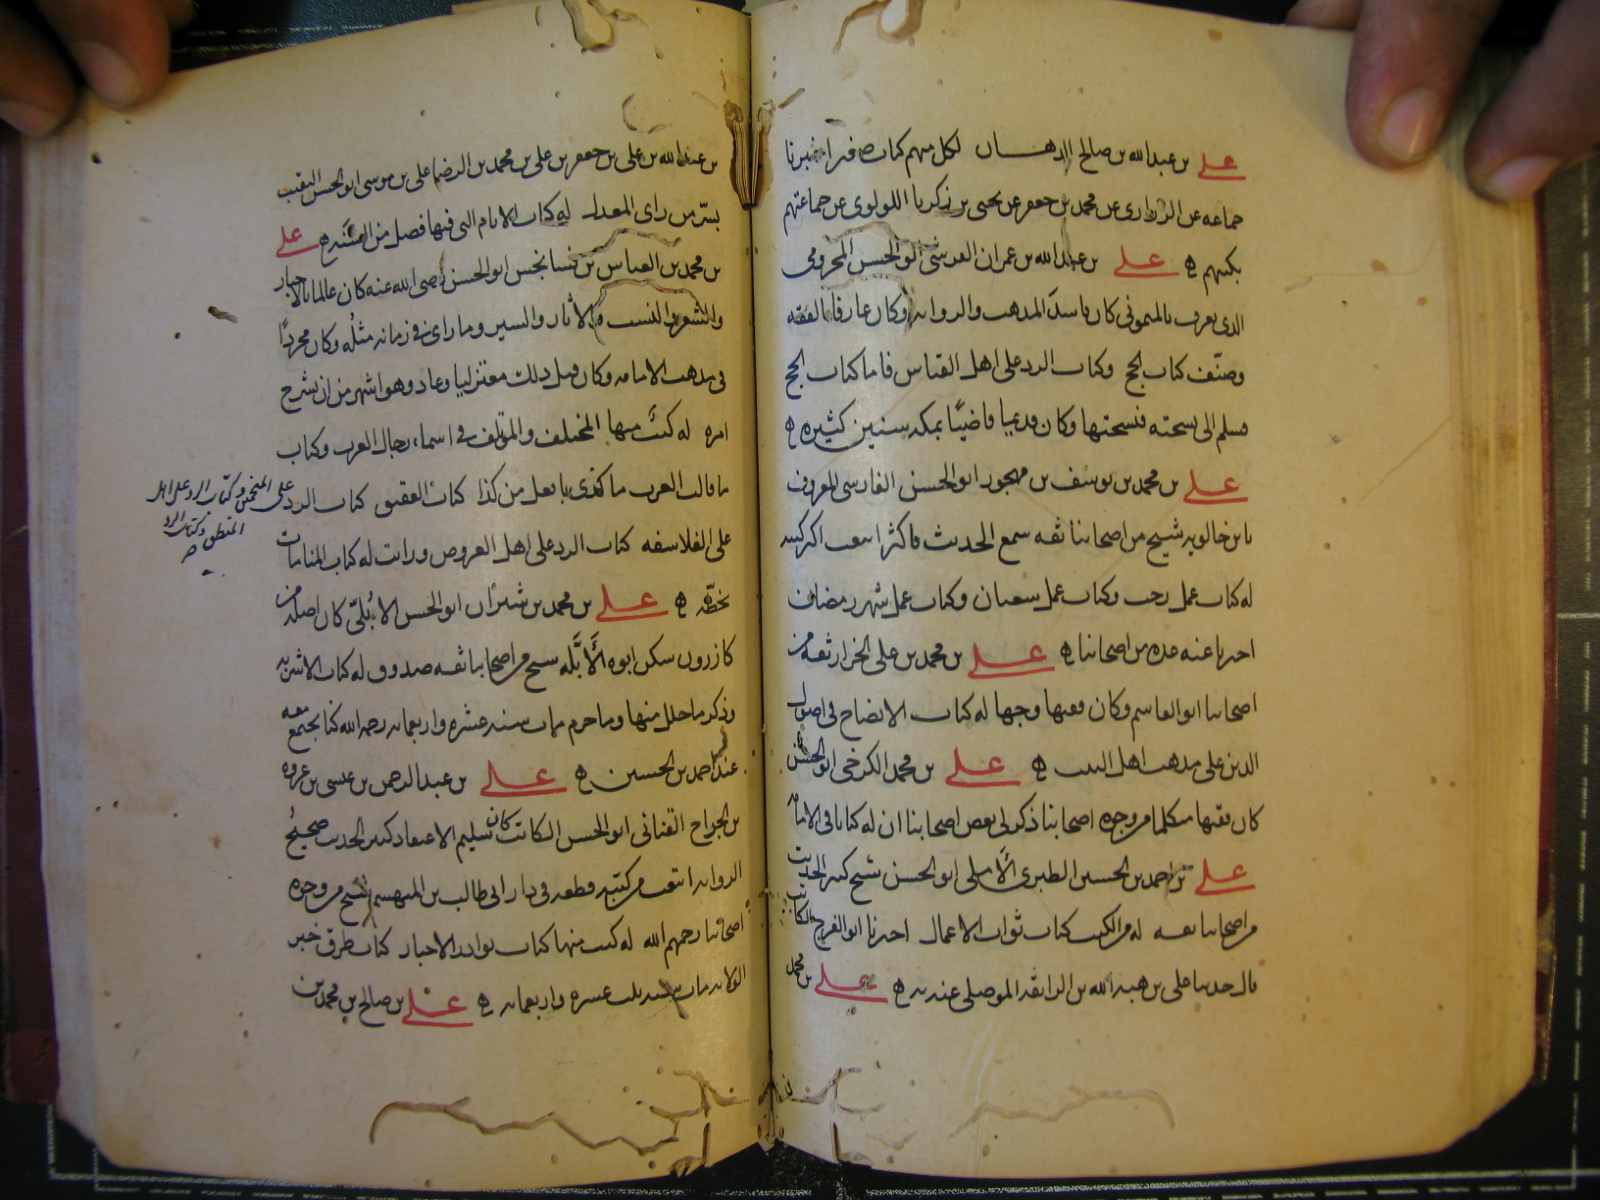 علي بن عبد الله بن صالح الدهان لكل منهم كتاب اخبرنا
جماعه عن الزراري عن محمد بن جعفر عن يحيى بن زكريا اللولوى عن جماعتهم
بكتبهم علي بن عبد الله بن عمران القرشى ابو الحسن المخزومى
الذى يعرف بالميمونى كان فاسد المذهب والروايه وكان عارفا بالفقه
وصنّف كتاب الحج وكتاب الرد على اهل القياس فاما كتاب الحج
فسلم الى نسخته فنسختها وكان قديما قاضيًا بمكه سنين كثيره
علي بن محمد بن يوسف بن مهجور ابو الحسن الفارسى المعروف
بابن خالويه شيخ من اصحابنا ثقه سمع الحديث فاكثر ابتعت اكثر كتبه
له كتاب عمل رجب وكتاب عمل شعبان وكتاب عمل شهر رمضان
اخبرنا عنه عده من اصحابنا علي بن محمد بن على الخزاز ثقه من
اصحابنا ابو القاسم وكان فقيها وجها له كتاب الايضاح فى اصول
الدين على مذهب اهل البيت علي بن محمد الكرخى ابو الحسن
كان فقيها متكلما من وجوه اصحابنا ذكر لى بعض اصحابنا ان له كتابا فى الامامه
علي بن احمد بن الحسين الطبرى الآملى ابو الحسن شيخ كثير الحديث
من اصحابنا ثقه له من الكتب كتاب ثواب الاعمال اخبرنا ابو الفرج الكاتب
قال حدثنا على بن هبه الله بن الرايقه الموصلى عنه به علي بن محمد
بن عبد الله بن على بن جعفر بن على بن محمد بن الرضا على بن موسى ابو الحسن النقيب
بسرّ من راى المعدل له كتاب الايام التى فيها فصل من السنه علي
بن محمد بن العباس بن فسانجس ابو الحسن رضى الله عنه كان عالما بالاخبار
والشعر والنسب والاثار والسير وما راى فى زمانه مثلُه وكان مجردًا
فى مذهب الاماميه وكان قبل ذلك معتزليا وعاد وهو اشهر من ان يشرح
امره له كتب منها المختلف والمؤتلف فى اسماء رجال العرب وكتاب
كتاب العقيق كتاب الرد
على المنجمى وكتاب الرد على اهل
المنطق وكتاب الرد
صح
على الفلاسفه كتاب الرد على اهل العروض ورايت له كتاب المنامات
بخطّه علي بن محمد بن شيران ابو الحسن الابُلّى كان اصله من
كازرون سكن ابوه الأُبلّه شيخ من اصحابنا ثقه صدوق له كتاب الاشربه
وذكر ما حلل منها وما حرم مات سنه عشره واربعمايه رحمه الله كنا نجتمع معه
عند احمد بن الحسين علي بن عبد الرحمن بن عيسى بن عروه
بن الجراح القنانى ابو الحسن الكاتب كان سليم الاعتقاد كثير الحديث صحيحُ
الروايه ابتعت من كتبه قطعه فى دار ابى طالب بن المنهشم شيخ من وجوه
اصحابنا رحمهم الله له كتب منها كتاب نوادر الاخبار كتاب طرق خبر
الولايه مات سنه ثلث عشره واربعمايه علي بن صالح بن محمد بن